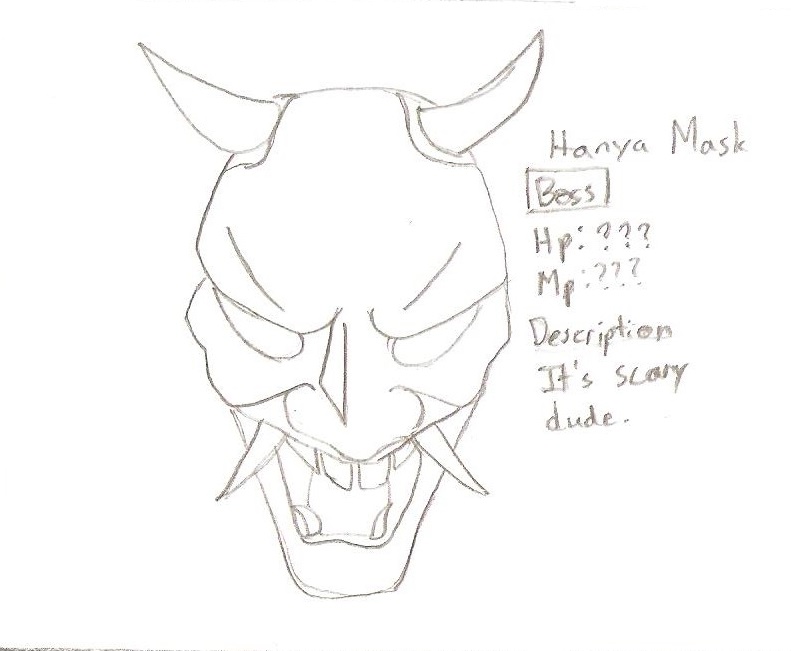 Hanya Mask
Boss
Hp: ???
Mp: ???
Description
It's scary
dude.